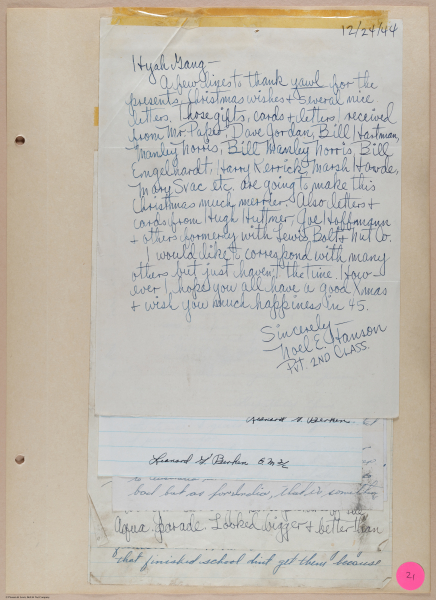 12/24/44
Hyah Gang —
A few lines to thank yawl for the
presents, Christmas wishes + several nice
letters. Those gifts, cards + letters I received
from Mr. Paper, Dave Gordan, Bill Hartman,
Manley Norris, Bill Manley Norris Bill
Engelhardt, Harry Kerrick, Marsh Hawde,
Mary Svac etc. are going to make this
Christmas much merrier. Also letters +
cards from Hugh Huttner, Joe Hoffmann
+ others formerly with Lewis Bolt + Nut Co.
I would like to correspond with many
others but just haven't the time. How-
ever I hope you all have a good Xmas
+ wish you much happiness in 45.
Sincerely —
Noel E. Hanson
Pvt. 2ND CLASS.
Leonard W. Benken
Leonard W. Benken
bad but as for India, that is
Aqua Parade. Looked bigger + better than
"that finished school dint get there" because
21